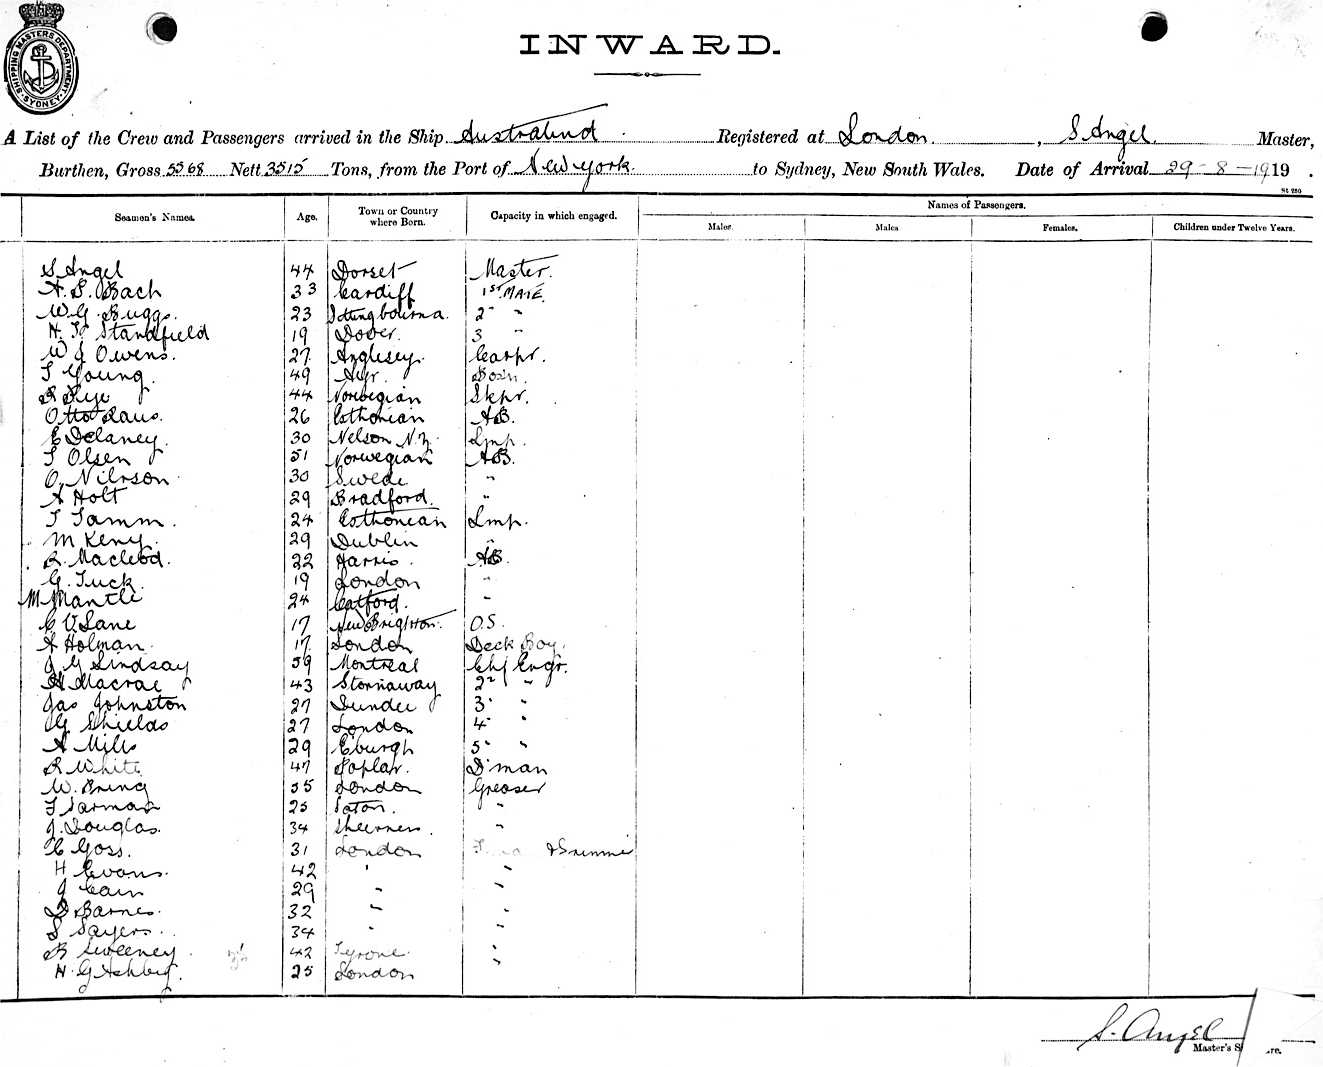 SHIPPING MASTERS DEPARTMENT. SYDNEY
INWARD.
A List of the Crew and Passengers arrived in the Ship Australind Registered at London, S Angel. Master,
Burthen, Gross 5568 Nett 3515 Tons, from the Port of New York. to Sydney, New South Wales. Date of Arrival 29-8-1919.
St 230
Seamen's Names. Age. Town or Country where Born. Capacity in which engaged. Names of Passengers.
Males. Males Females. Children under Twelve Years.
S Angel 44 Dorset Master.
A. S. Bach 33 Cardiff 1st MATE.
W. G. Buggs. 23 2 "
H. Standfield 19 Dover. 3 "
W J Owens. 27 Anglesey. Carpr.
T Young. 49 Ayr. Bosn.
44 Norwegian Skpr.
Otto Laus. 26 Esthonian AB.
E Delaney. 30 Nelson N.Z. Lmp.
T Olsen 51 Norwegian AB.
O. Nilsson 30 Swede "
A Holt 29 Bradford. "
T Tamm. 24 Esthonian Lmp.
M Keny. 29 Dublin "
R. Macleod. 22 Harris. AB.
G. Tuck. 19 London "
M Mantle 24 Catford. "
C V Lane 17 New Brighton. O.S.
A Holman. 17 London Deck Boy.
J G Lindsay 59 Montreal Chf Engr.
A Macrae 43 Stornaway 2nd "
Jas Johnston 27 Dundee 3 "
G. Shields 27 London 4 "
A Mills 29 Eburgh 5 "
R White 47 Poplar. D'man
W. Bring 55 London Greaser
T Jarman 25 "
J. Douglas. 34 Sheerness. "
C Goss. 31 London & Trimmer
H Evans. 42 " "
J Cain 29 " "
D Barnes. 32 " "
S Sayers. 34 " "
B Sweeney. 42 Tyrone. "
H. G Ashby. 25 London "
S. Angel
Master's S re.